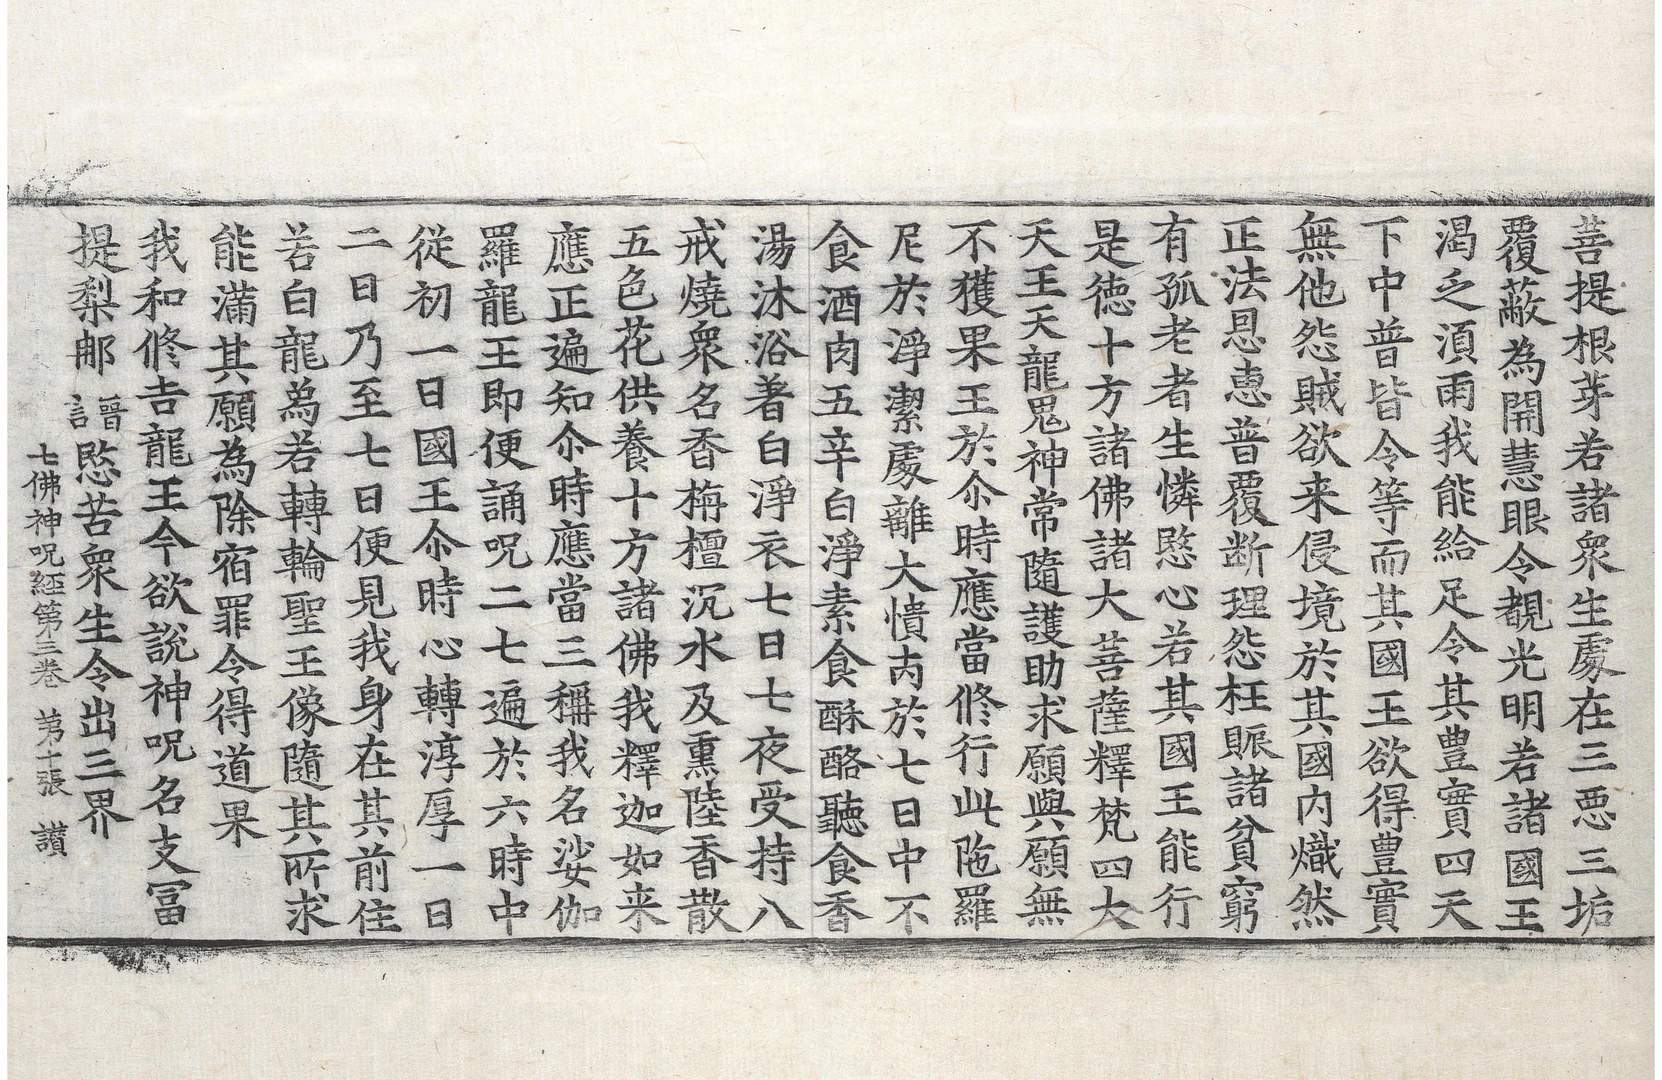 菩提根芽若諸衆生處在三惡三垢
覆蔽為開慧眼令覩光明若諸國王
渴乏須雨我能給足令其豊實四天
下中普皆令等而其國王欲得豊實
無他怨賊欲来侵境於其國内熾然
正法恩恵普覆断理怨枉賑諸貧窮
有孤老者生憐愍心若其國王能行
是徳十方諸佛諸大菩薩釋梵四大
天王天龍鬼神常隨護助求願與願無
不獲果王於尒時應當修行此陁羅
尼於淨潔處離大憒丙於七日中不
食酒肉五辛白淨素食酥酪聽食香
湯沐浴著白淨衣七日七夜受持八
戒燒衆名香栴檀沉水及熏陸香散
五色花供養十方諸佛我釋迦如来
應正遍知尒時應當三稱我名娑伽
羅龍王即便誦呪二七遍於六時中
從初一日國王尒時心轉淳厚一日
二日乃至七日便見我身在其前住
若白龍為若轉輪聖王像隨其所求
能滿其願為除宿罪令得道果
我和修吉龍王今欲說神呪名支冨
提梨那 晉言 愍苦衆生令出三界
七佛神呪經第三卷 第十張 讃